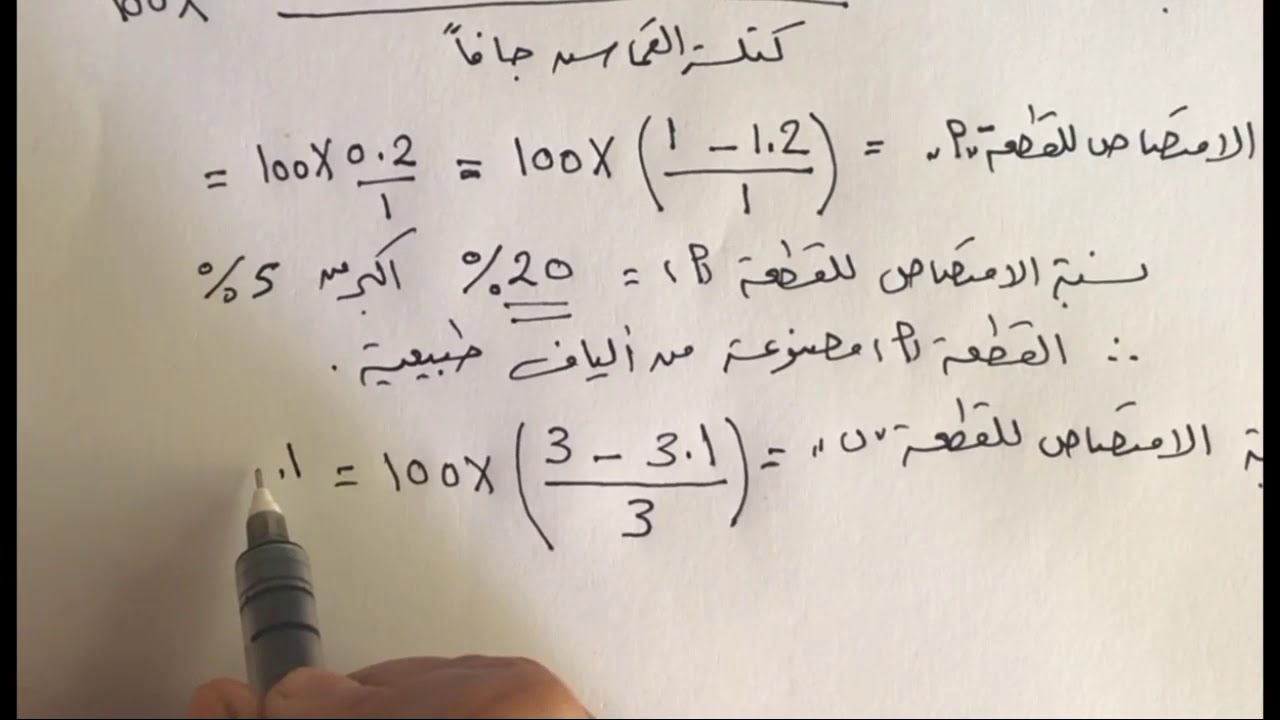 100X
كتلة القماش جافاً
الامتصاص للقطعة "م" = (1 - 1.2 / 1) 100X = 0.2 / 1 100X =
نسبة الامتصاص للقطعة "م" = 20% أكبر من 5%
∴ القطعة "م" مصنوعة من ألياف طبيعية .
ة الامتصاص للقطعة "ن" = (3 - 3.1 / 3) 100X = .1